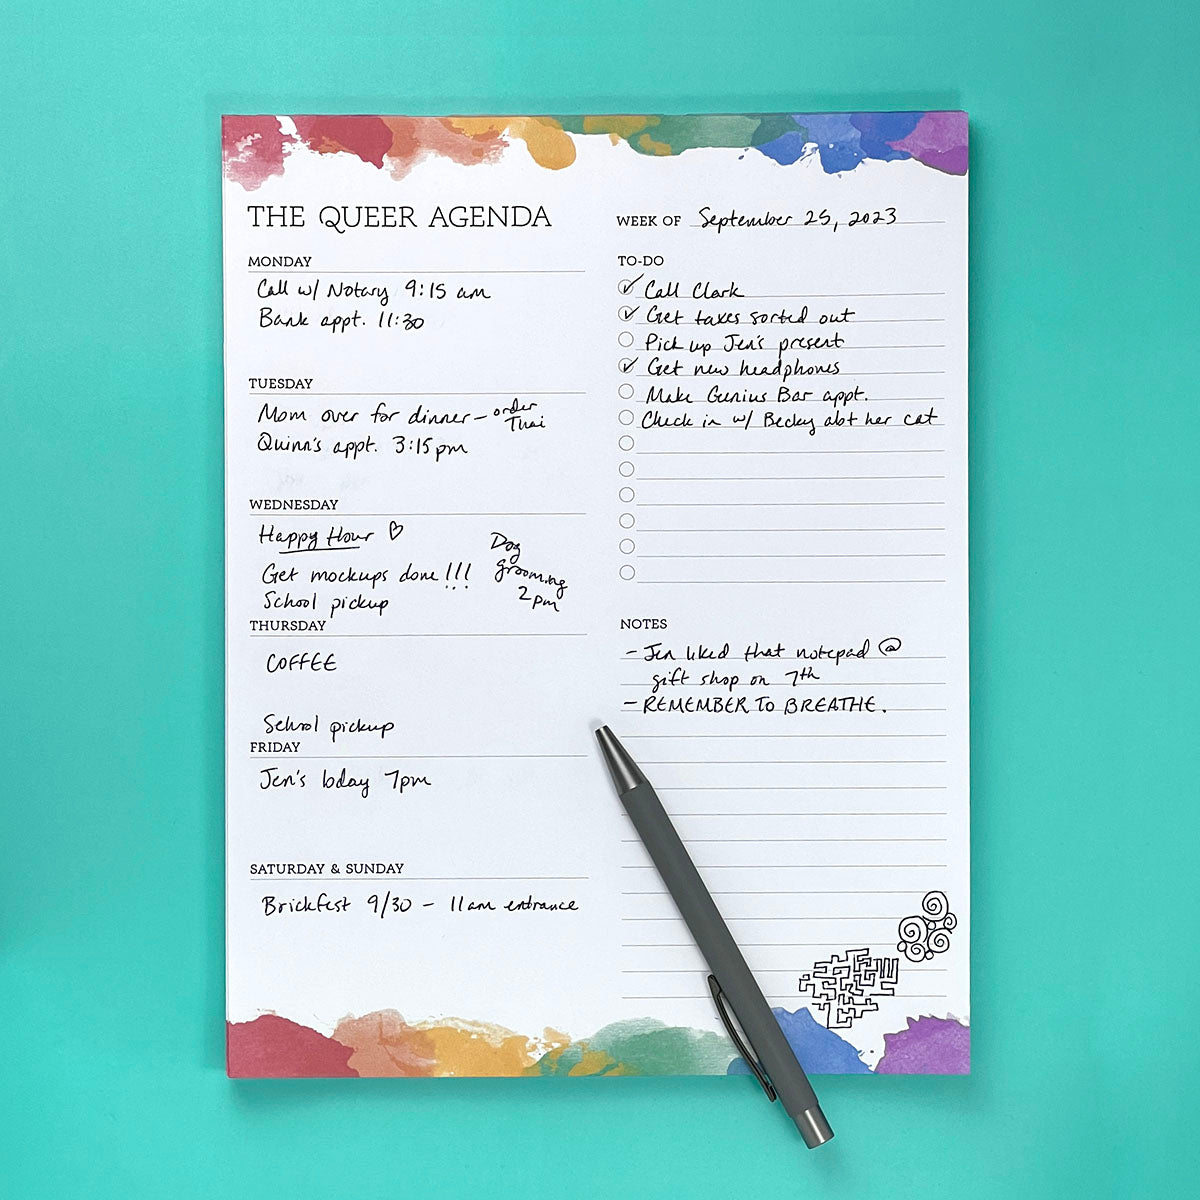 THE QUEER AGENDA
MONDAY
Call w/ Notary 9:15 am
Bank appt. 11:30
TUESDAY
Mom over for dinner – order
Thai
Quinn's appt. 3:15pm
WEDNESDAY
Happy Hour ♡
Get mockups done!!!
School pickup
Dog
grooming
2pm
THURSDAY
COFFEE
School pickup
FRIDAY
Jen's bday 7pm
SATURDAY & SUNDAY
Brickfest 9/30 – 11am entrance
WEEK OF September 25, 2023
TO-DO
Call Clark
Get taxes sorted out
Pick up Jen's present
Get new headphones
Make Genius Bar appt.
Check in w/ Becky abt her cat
NOTES
– Jen liked that notepad @
gift shop on 7th
– REMEMBER TO BREATHE.